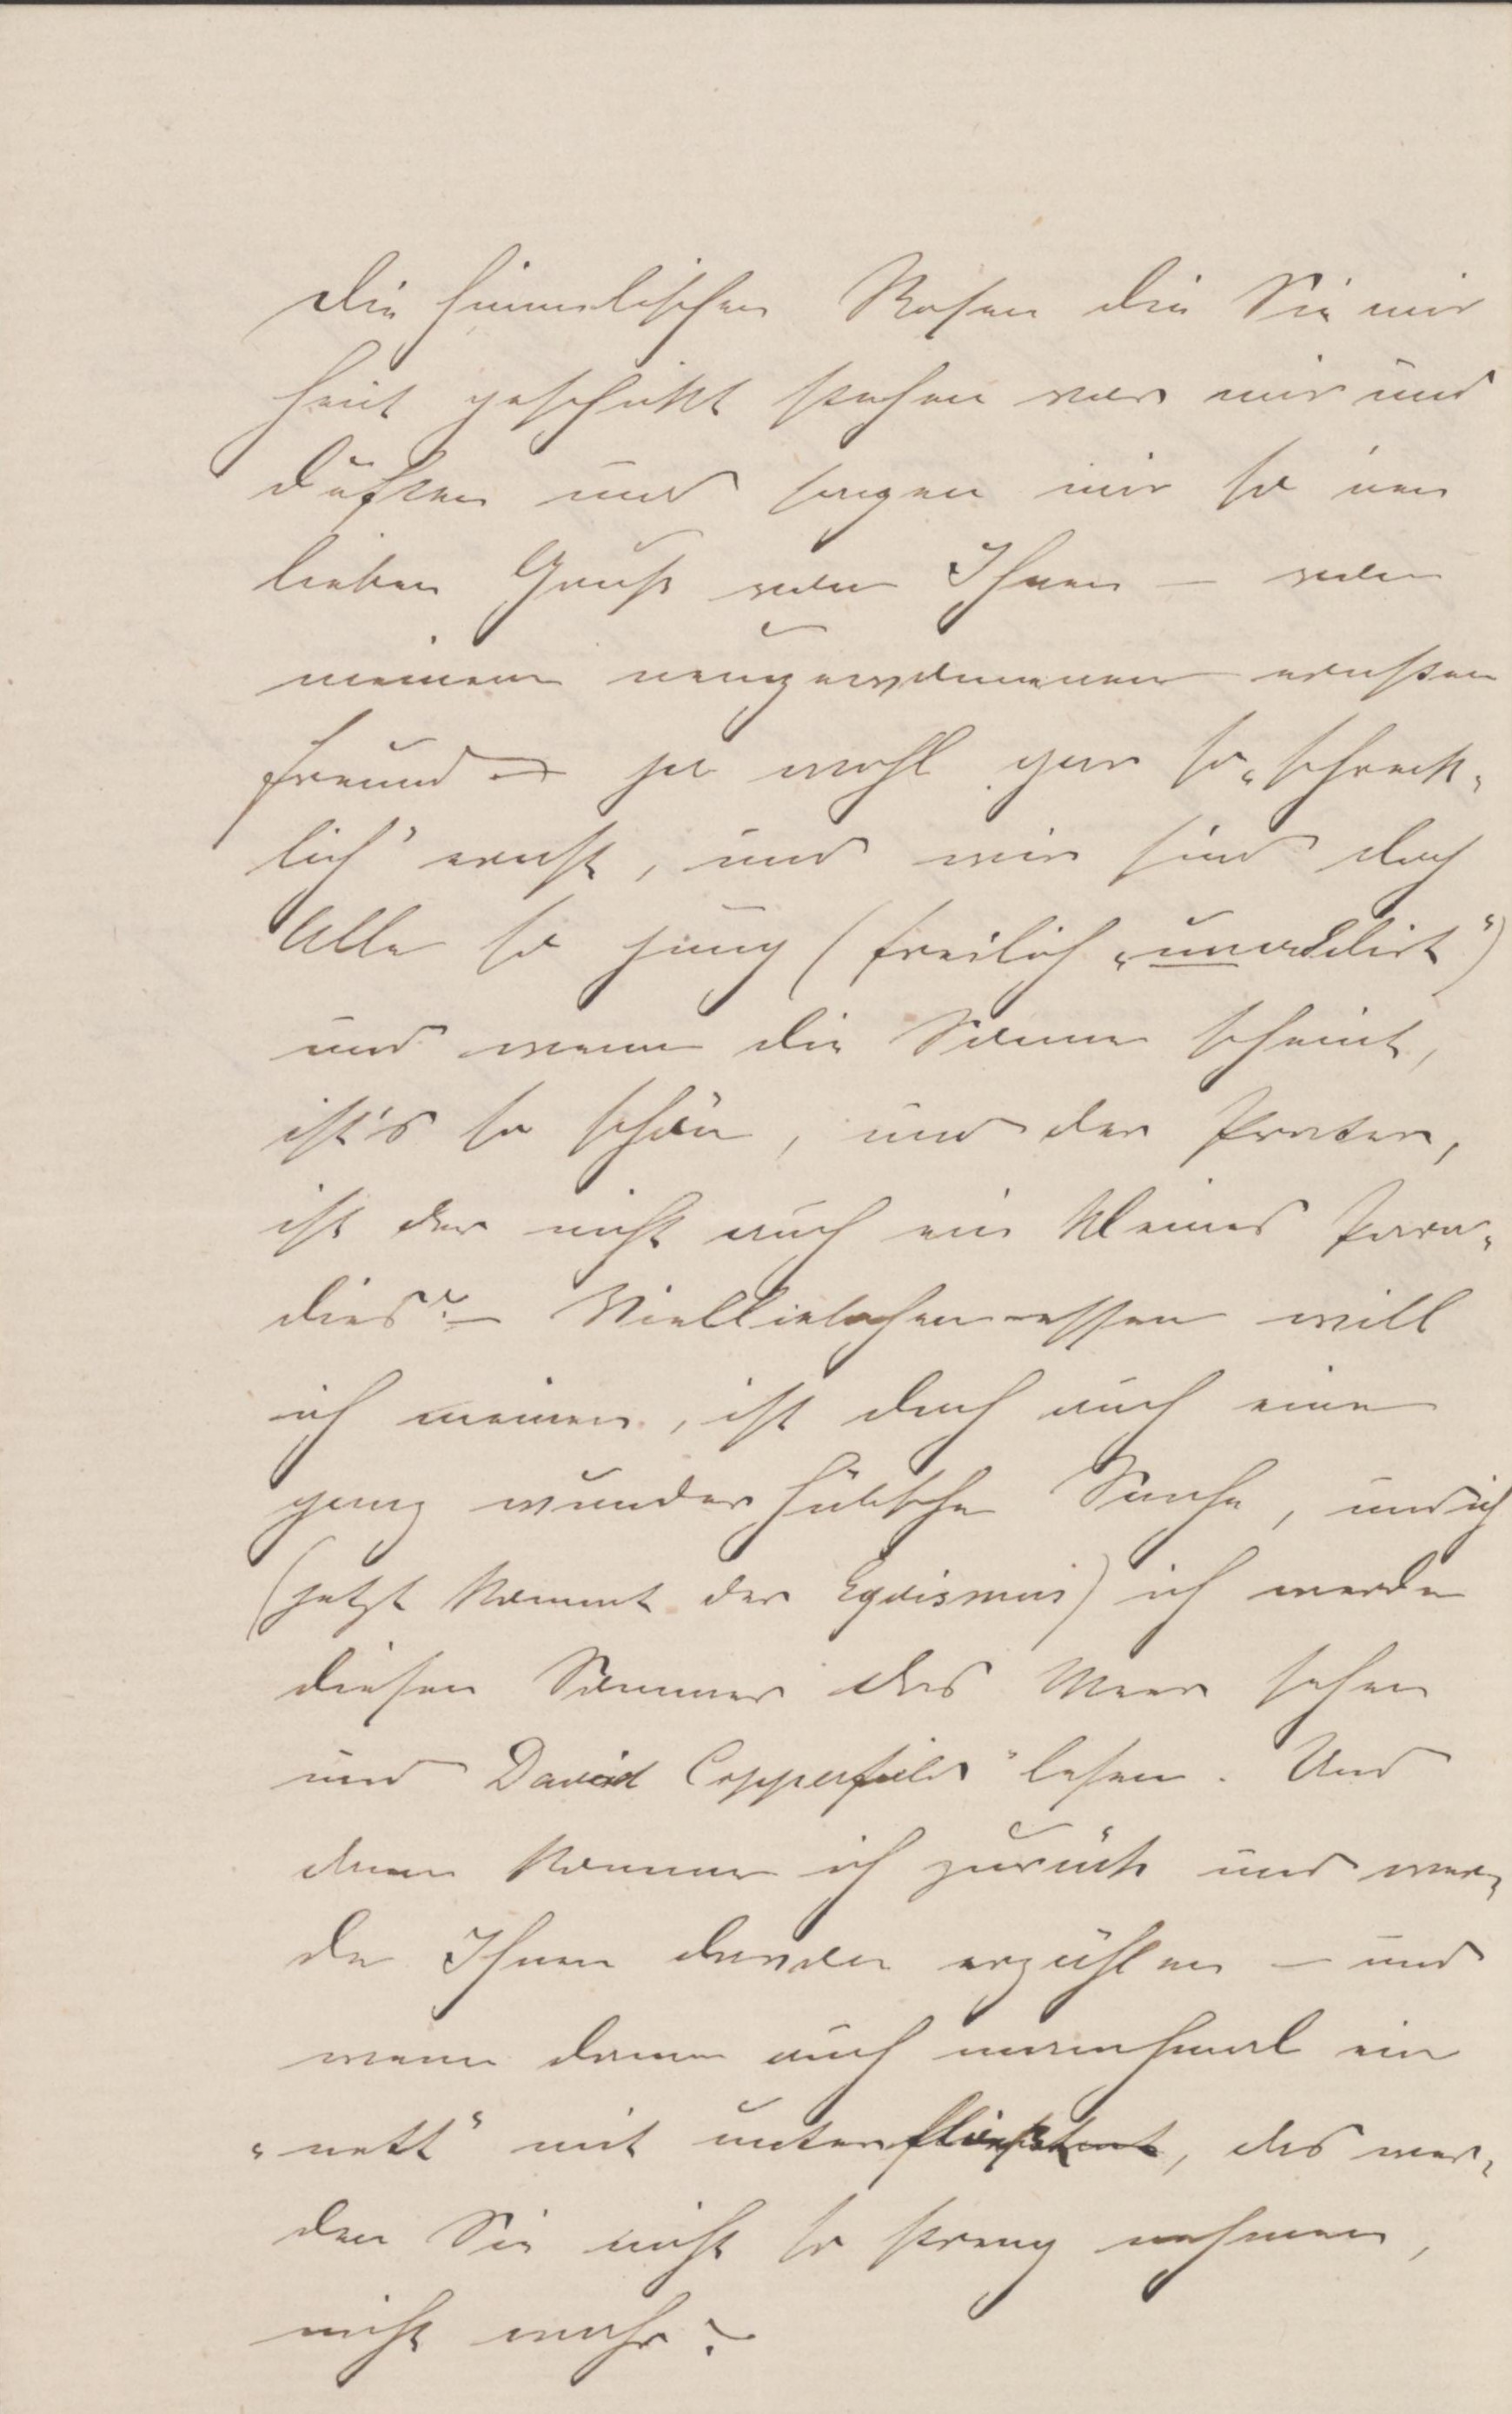 Die himmlischen Rosen die Sie mir
heut geschikt stehen vor mir und
duften und sagen mir so nen
lieben Gruß von Ihnen – von
meinem neugewonnenen ernsten
Freund – ja wohl gar so „schreck-
lich" ernst, und wir sind doch
Alle so jung (freilich „unverdient")
und wenn die Sonne scheint,
ist's so schön, und der Prater,
ist der nicht auch ein kleines Para-
dies? – Vielliebchen-essen will
ich meinen, ist doch auch eine
ganz wunderhübsche Sache, und ich
(jetzt kommt der Egoismus) ich werde
diesen Sommer das Meer sehen
und David Copperfield" lesen. Und
dann komme ich zurück und wer-
de Ihnen davon erzählen – und
wenn dann auch manchmal ein
„nett" mit unter, das wer-
den Sie nicht so streng nehmen,
nicht wahr?